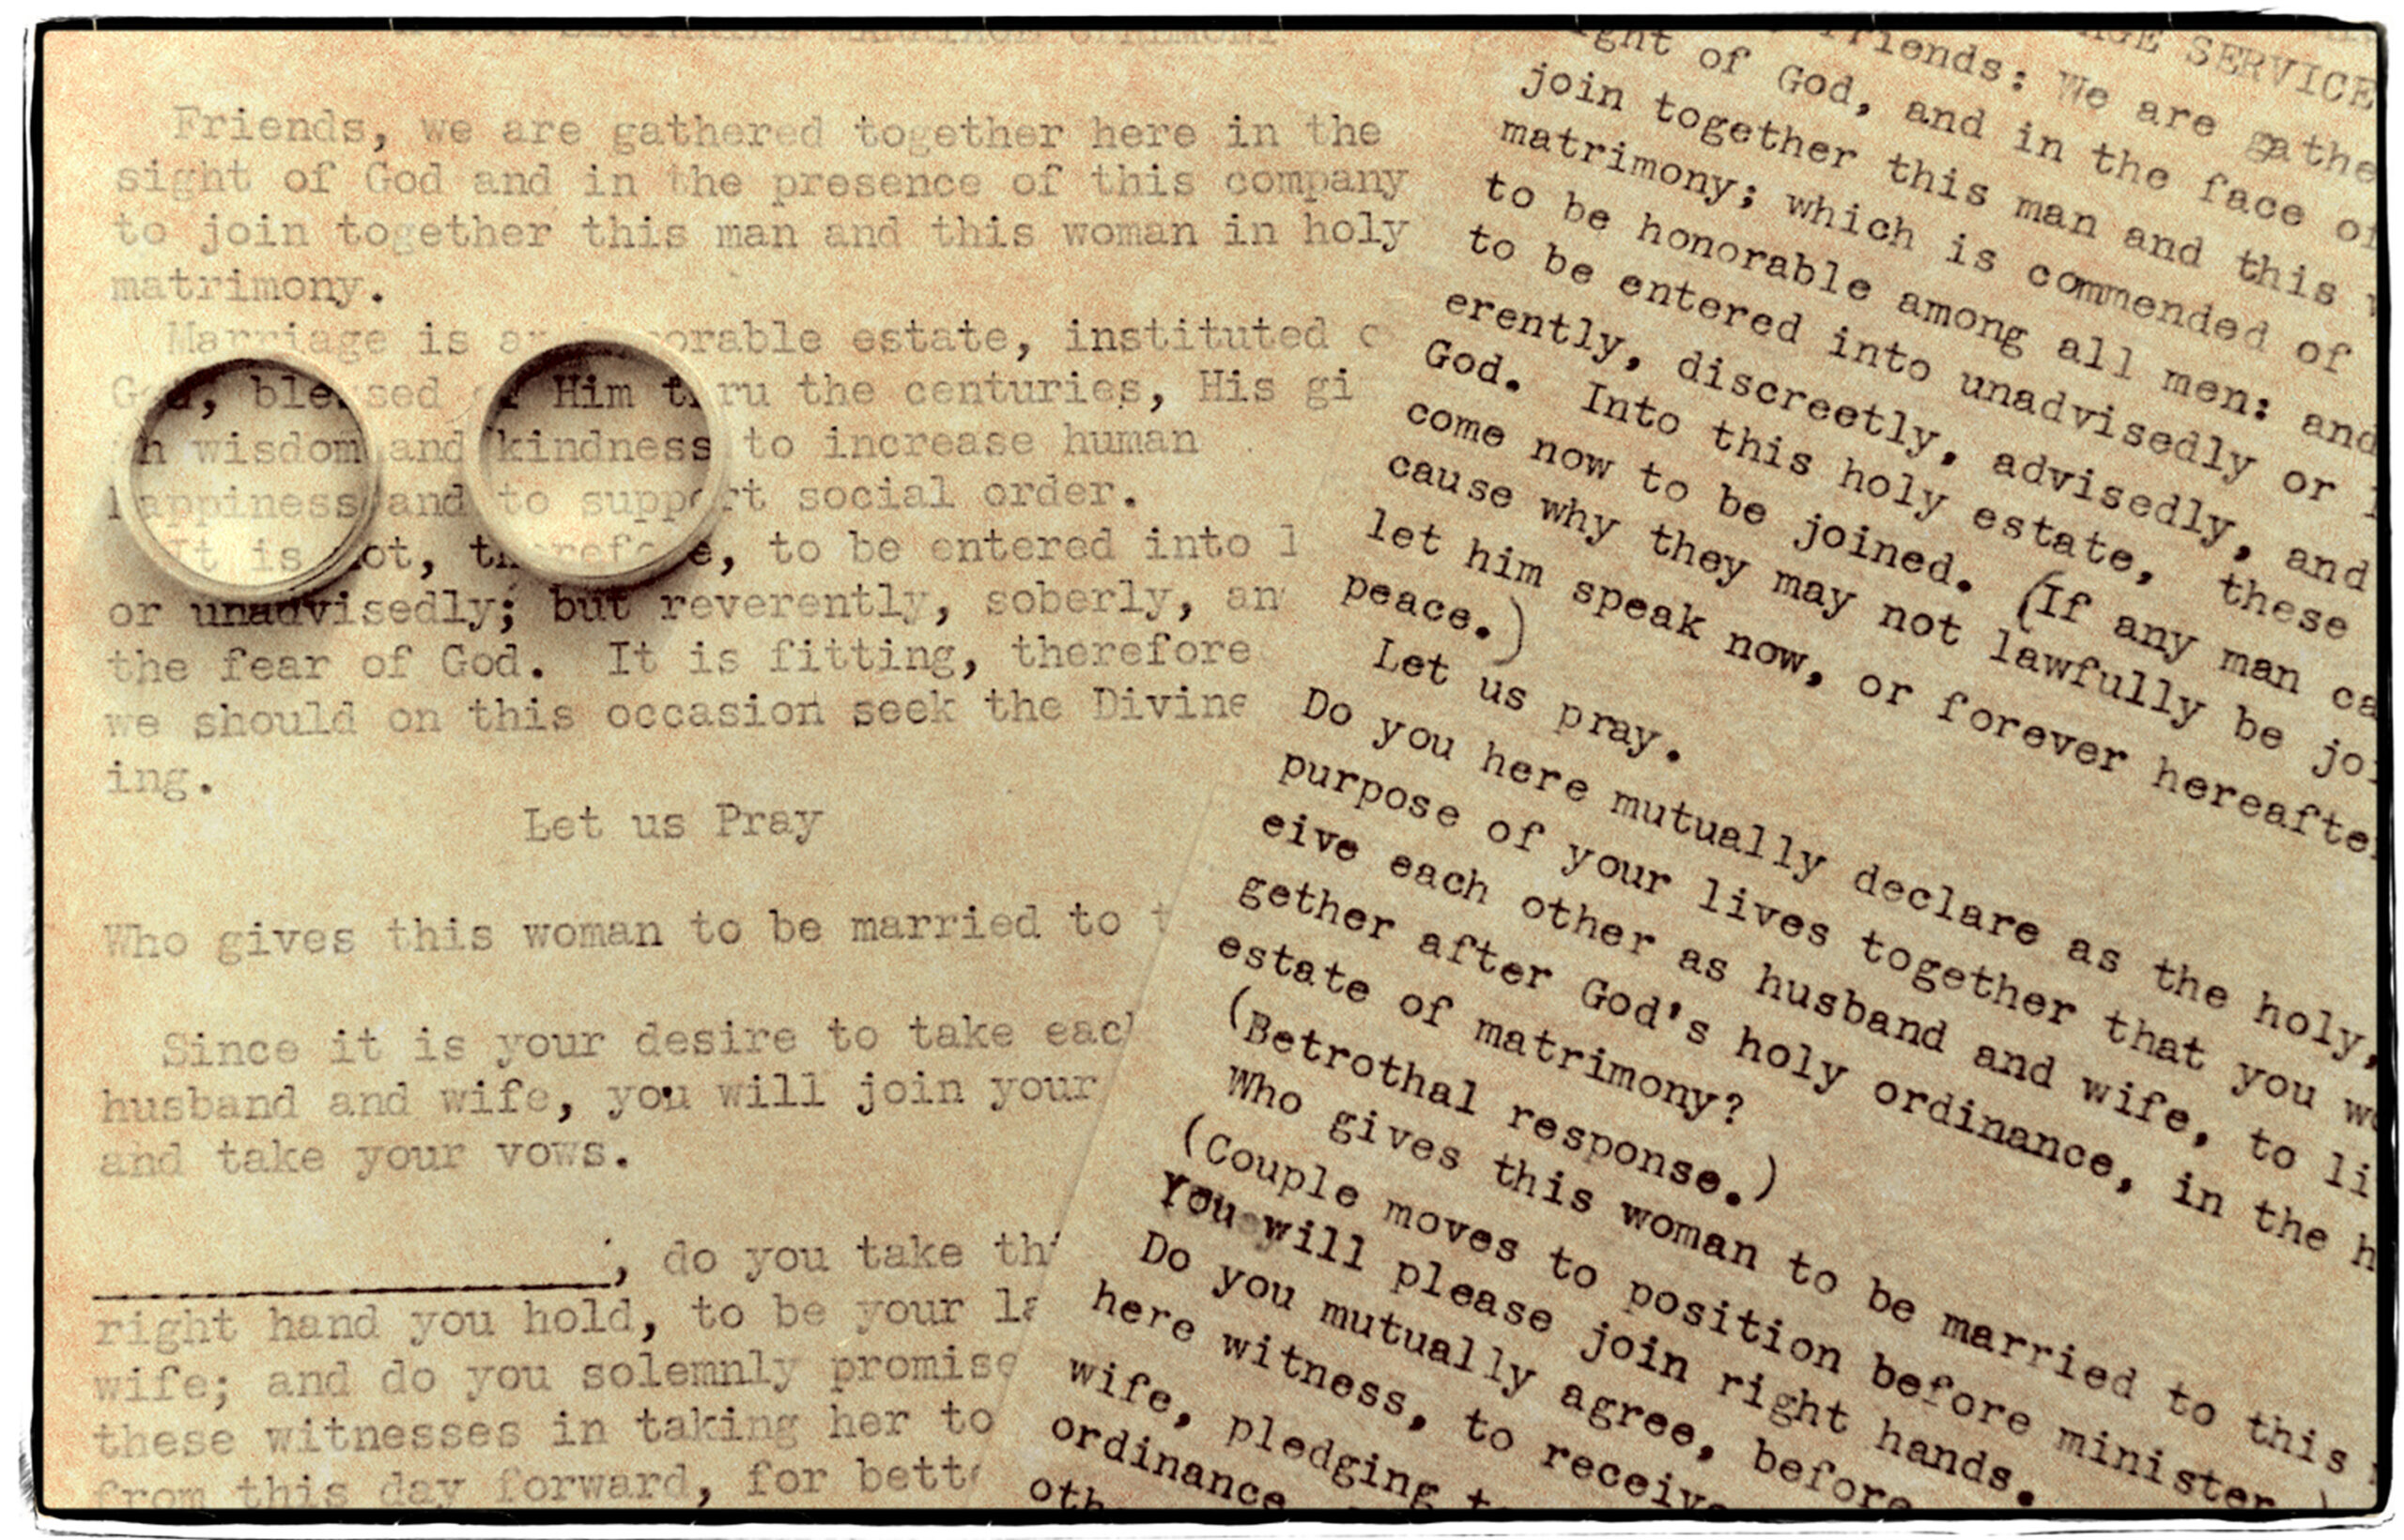 Friends, we are gathered together here in the
sight of God and in the presence of this company
to join together this man and this woman in holy
matrimony.
Marriage is an honorable estate, instituted
God, blessed of Him thru the centuries, His gi
in wisdom and kindness to increase human
happiness and to support social order.
It is not, therefore, to be entered into l
or unadvisedly; but reverently, soberly, an
the fear of God. It is fitting, therefore
we should on this occasion seek the Divine
ing.
Let us Pray
Who gives this woman to be married to t
Since it is your desire to take each
husband and wife, you will join your
and take your vows.
____________________, do you take thi
right hand you hold, to be your la
wife; and do you solemnly promise
these witnesses in taking her to
from this day forward, for bette
SERVICE
Friends: We are gathe
ight of God, and in the face of
join together this man and this w
matrimony; which is commended of
to be honorable among all men: and
to be entered into unadvisedly or l
erently, discreetly, advisedly, and
God. Into this holy estate, these
come now to be joined. (If any man ca
cause why they may not lawfully be joi
let him speak now, or forever hereafter
peace.)
Let us pray.
Do you here mutually declare as the holy,
purpose of your lives together that you wo
eive each other as husband and wife, to li
gether after God's holy ordinance, in the h
estate of matrimony?
(Betrothal response.)
Who gives this woman to be married to this
(Couple moves to position before minister.)
You will please join right hands.
Do you mutually agree, before
here witness, to receive
wife, pledging t
ordinance
oth